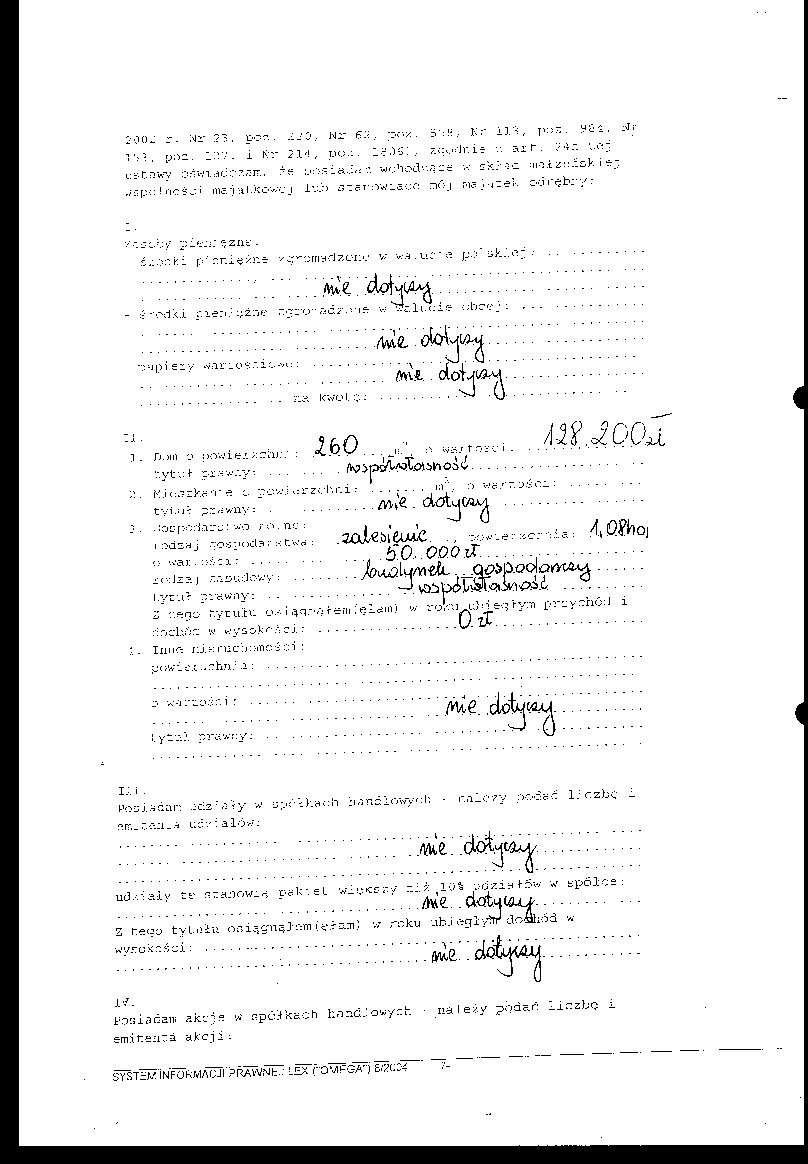 2002 r. Nr 23, poz. 220, Nr 62, poz. 558, Nr 113, poz. 984, Nr
153, poz. 127. i Nr 214, poz. 1806), zgodnie z art. 24h tej
ustawy oświadczam, że posiadam wchodzące w skład małżeńskiej
wspólności majątkowej lub stanowiące mój majątek odrębny:
I.
Zasoby pieniężne:
środki pieniężne zgromadzone w walucie polskiej: ............
nie dotyczy
- środki pieniężne zgromadzone w walucie obcej: ............
nie dotyczy
papiery wartościowe: ............
nie dotyczy
............ na kwotę: ............
II.
1. Dom o powierzchni: 260 m², o wartości: 128.200 zł
tytuł prawny: ...... współwłasność ............
2. Mieszkanie o powierzchni: ...... m², o wartości: ......
tytuł prawny: ...... nie dotyczy ......
3. Gospodarstwo rolne:
rodzaj gospodarstwa: zalesienie, powierzchnia: 1,08 ha
o wartości: ...... 50.000 zł ......
rodzaj zabudowy: ...... budynek gospodarczy ......
tytuł prawny: ...... współwłasność ......
Z tego tytułu osiągnąłem(ęłam) w roku ubiegłym przychód i
dochód w wysokości: ...... 0 zł ......
4. Inne nieruchomości:
powierzchnia: ............
o wartości: ............
nie dotyczy
tytuł prawny: ............
III.
Posiadam udziały w spółkach handlowych - należy podać liczbę i
emitenta udziałów:
nie dotyczy
udziały te stanowią pakiet większy niż 10% udziałów w spółce:
nie dotyczy
Z tego tytułu osiągnąłem(ęłam) w roku ubiegłym dochód w
wysokości: ............
nie dotyczy
IV.
Posiadam akcje w spółkach handlowych - należy podać liczbę i
emitenta akcji:
SYSTEM INFORMACJI PRAWNEJ LEX ("OMEGA") 6/2004